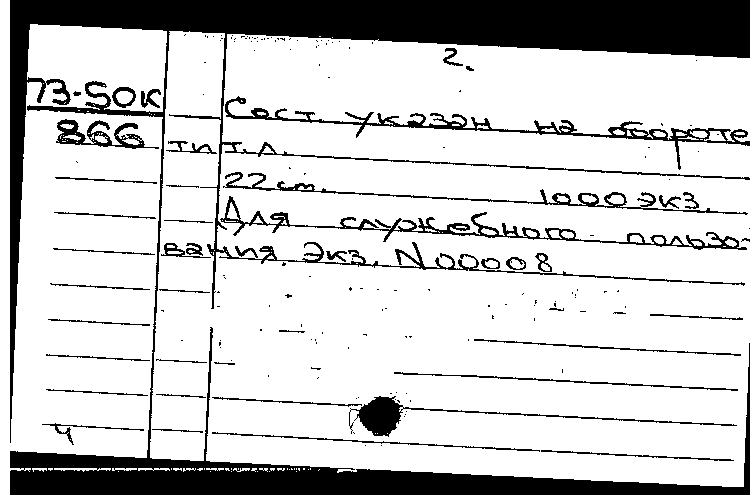 2.
73-50к
866
Сост. указан на обороте
тит. л.
22 cm. 1000 экз.
Для служебного пользо-
вания. Экз. N 00008.
ч